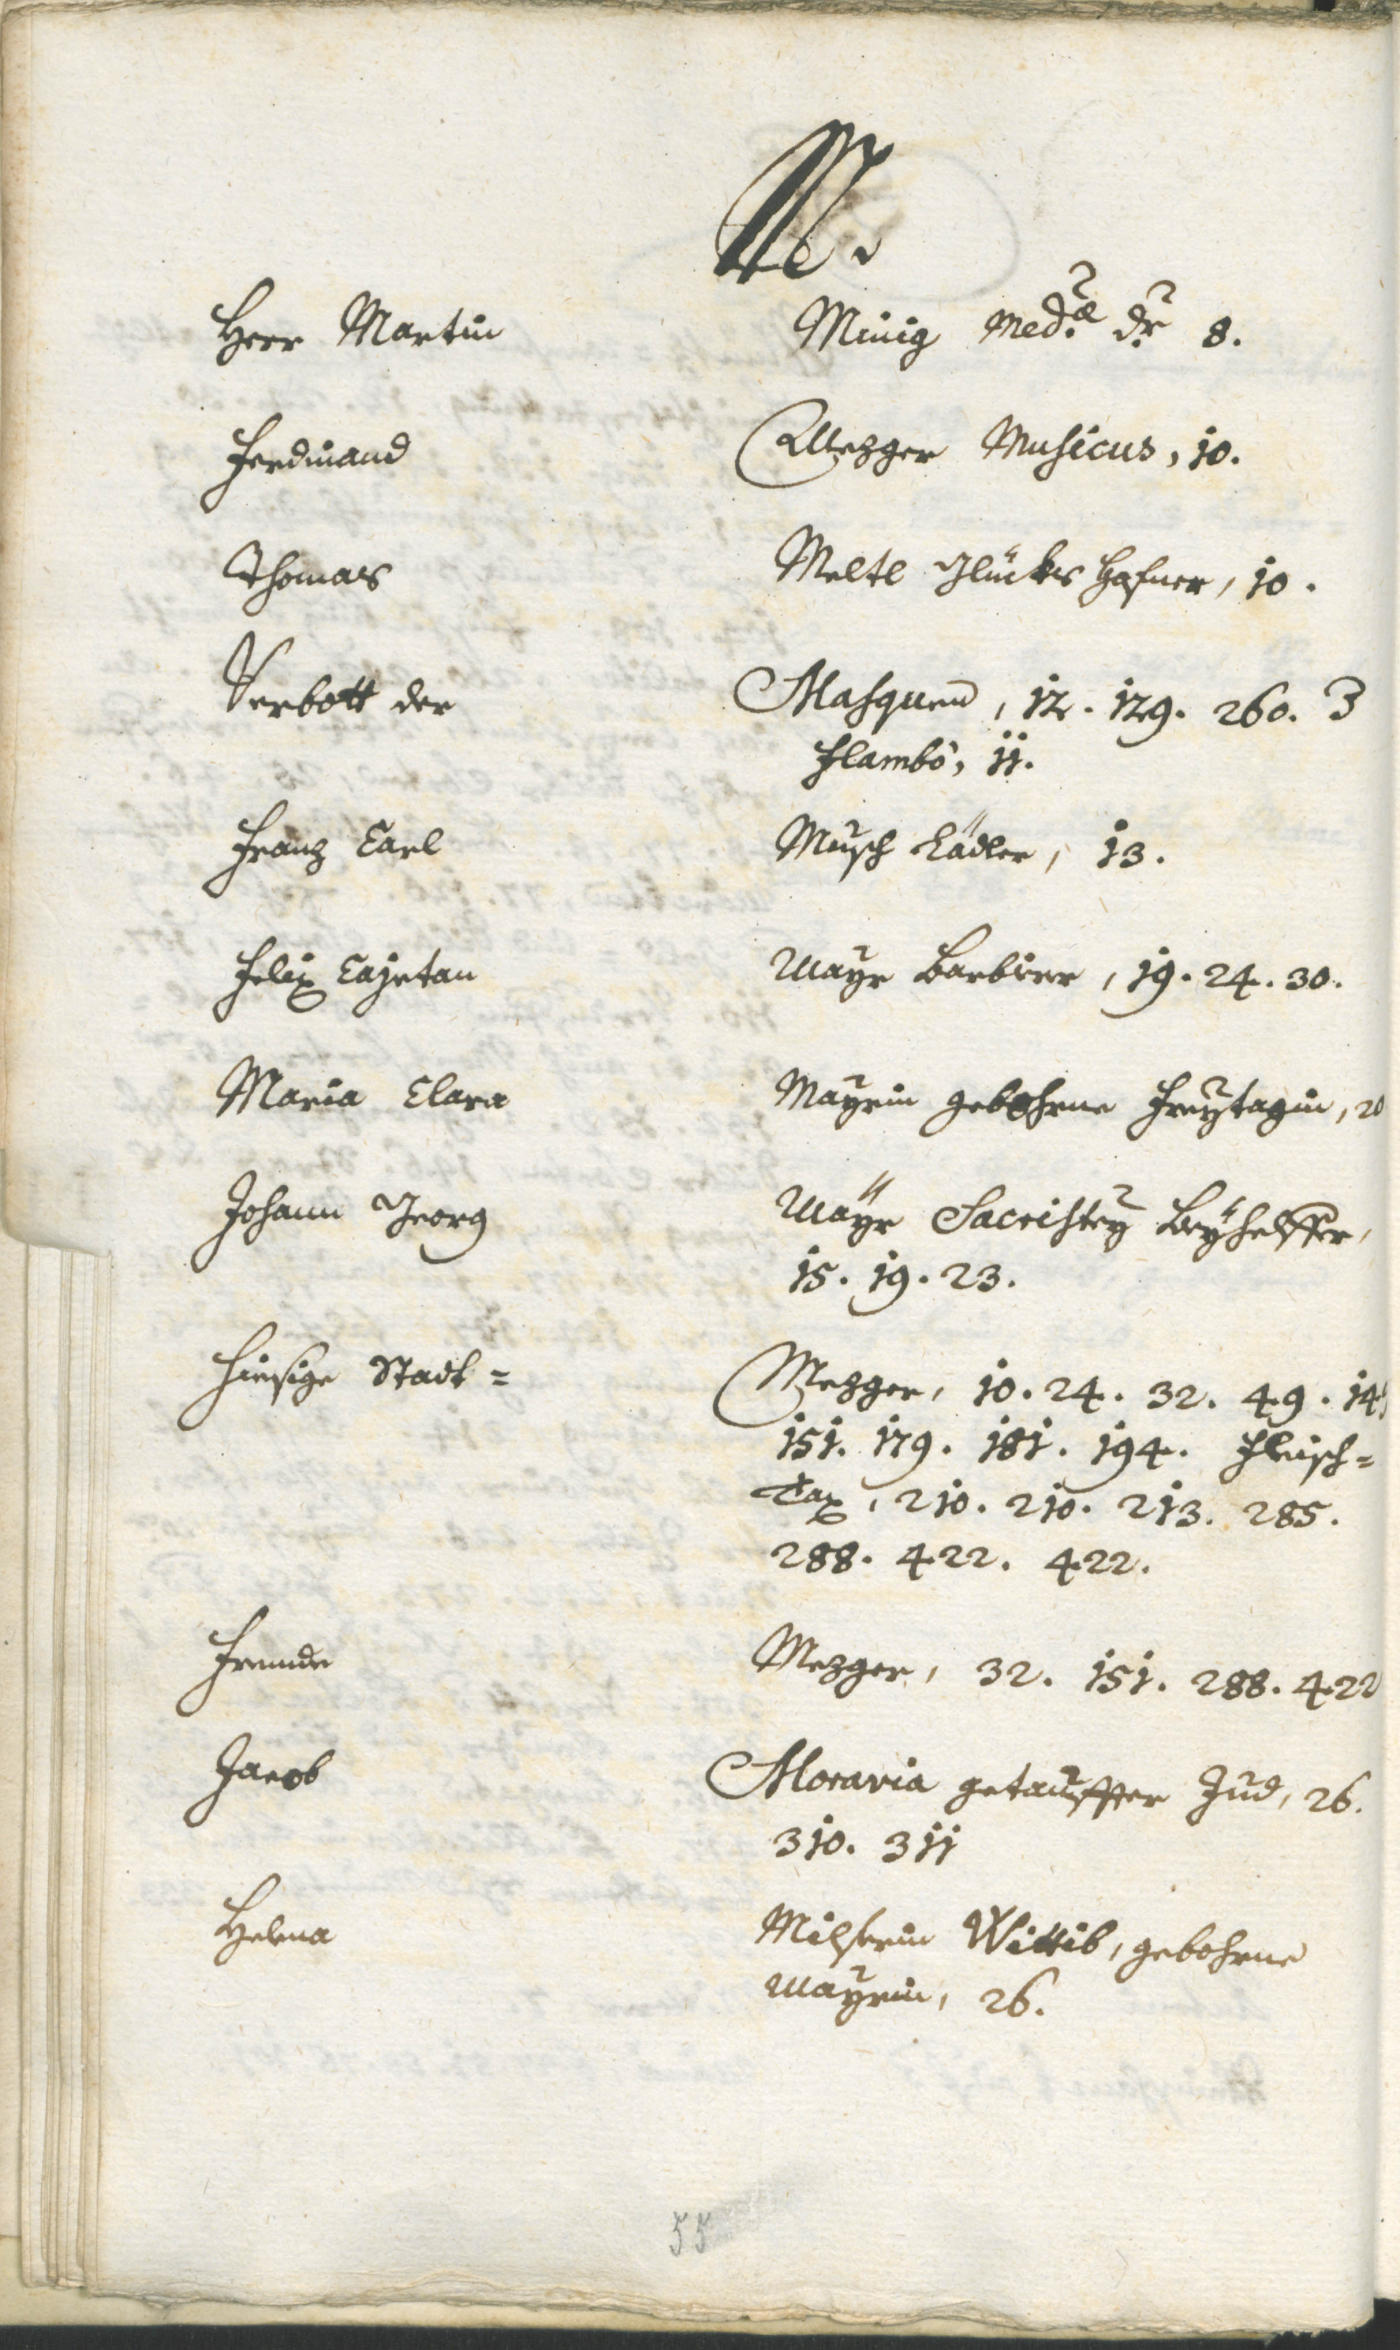 M.
Herr Martin Minig Med.æ dr 8.
Ferdinand Mezger Musicus, 10.
Thomas Meltl Glücks Hafner, 10.
Verbott der Masquen, 12. 129. 260. 3
Flambo, 11.
Franz Carl Musch Lädler, 13.
Felix Cajetan Mayr Barbirer, 19. 24. 30.
Maria Clara Mayrin gebohrne Freytagin, 20
Johann Georg Mayr Sacristey Beyhelffer,
15. 19. 23.
Hiesige Stadt= Mezger, 10. 24. 32. 49. 14
151. 179. 181. 194. Fleisch=
Tax, 210. 210. 213. 285.
288. 422. 422.
Fremde Mezger, 32. 151. 288. 422
Jacob Moravia getauffter Jud, 26.
310. 311
Helena Wittib, gebohrne
Mayrin, 26.
55